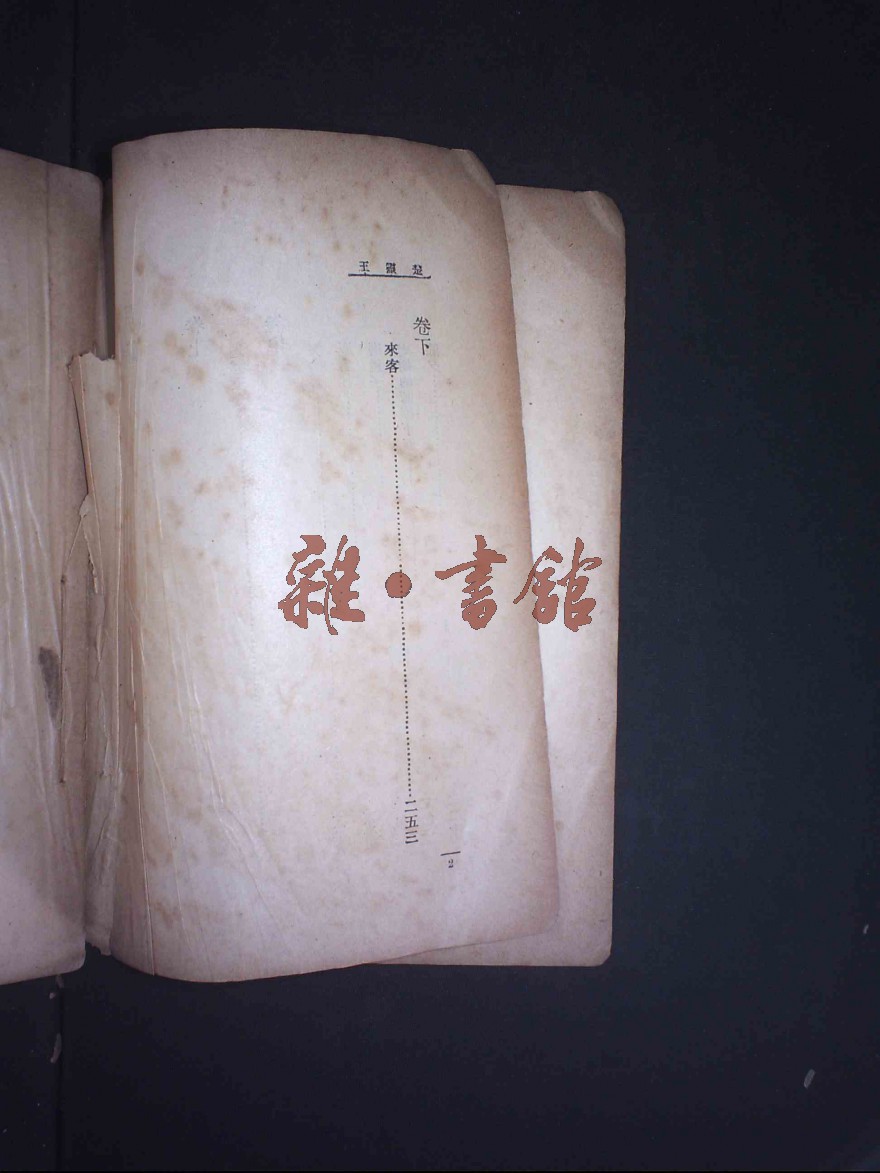 楚靈王
卷下
來客……二五三
2
雜·書館